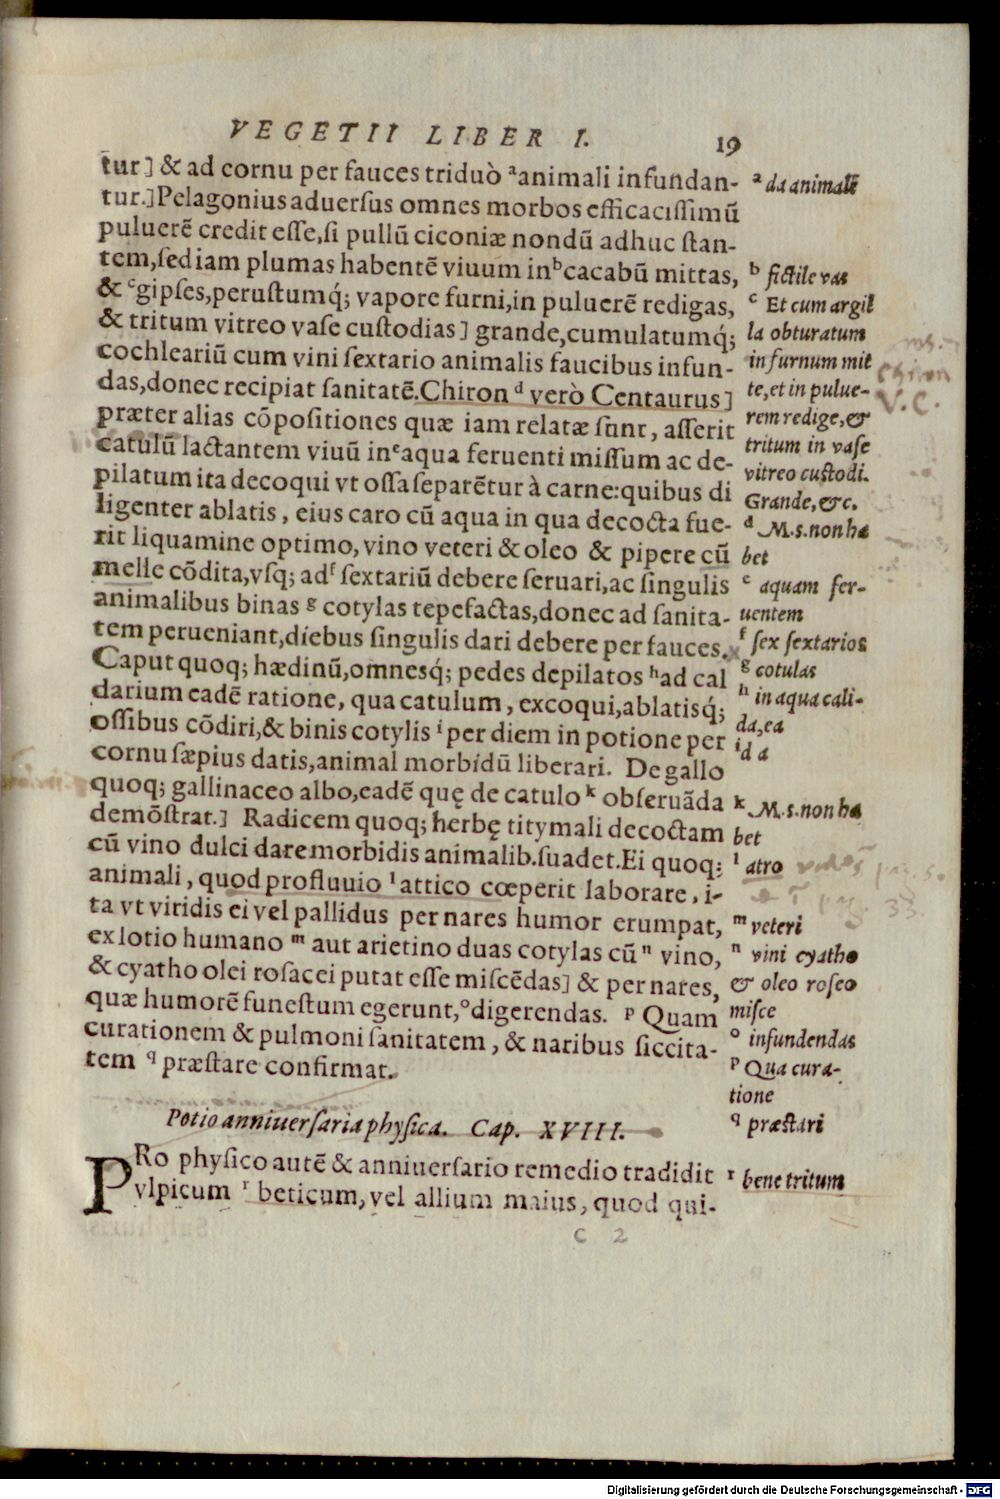 VEGETII LIBER I. 19
tur] & ad cornu per fauces triduò ᵃanimali infundan-
tur.]Pelagonius aduersus omnes morbos efficacissimũ
puluerẽ credit esse, si pullũ ciconiæ nondũ adhuc stan-
tem, sed iam plumas habentẽ viuum in ᵇcacabũ mittas,
& ᶜgipses, perustumq́; vapore furni, in puluerẽ redigas,
& tritum vitreo vase custodias] grande, cumulatumq́;
cochleariũ cum vini sextario animalis faucibus infun-
das, donec recipiat sanitatẽ. Chiron ᵈ verò Centaurus]
præter alias cõpositiones quæ iam relatæ sunt, asserit
catulũ lactantem viuũ in ᵉaqua feruenti missum ac de-
pilatum ita decoqui vt ossa separẽtur à carne: quibus di
ligenter ablatis, eius caro cũ aqua in qua decocta fue-
rit liquamine optimo, vino veteri & oleo & pipere cũ
melle cõdita, vsq; ad ᶠ sextariũ debere seruari, ac singulis
animalibus binas ᵍ cotylas tepefactas, donec ad sanita-
tem perueniant, diebus singulis dari debere per fauces.
Caput quoq; hædinũ, omnesq́; pedes depilatos ʰad cal
darium eadẽ ratione, qua catulum, excoqui, ablatisq́;
ossibus cõdiri, & binis cotylis ⁱ per diem in potione per
cornu sæpius datis, animal morbidũ liberari. De gallo
quoq; gallinaceo albo, eadẽ quę de catulo ᵏ obseruãda
demõstrat.] Radicem quoq; herbę titymali decoctam
cũ vino dulci dare morbidis animalib. suadet. Ei quoq;
animali, quod profluuio ˡ attico cœperit laborare, i-
ta vt viridis ei vel pallidus per nares humor erumpat,
ex lotio humano ᵐ aut arietino duas cotylas cũ ⁿ vino,
& cyatho olei rosacei putat esse miscẽdas] & per nares,
quæ humorẽ funestum egerunt, ᵒdigerendas. ᵖ Quam
curationem & pulmoni sanitatem, & naribus siccita-
tem ᑫ præstare confirmat.
Potio anniuersaria physica. Cap. XVIII.
PRo physico autẽ & anniuersario remedio tradidit
vlpicum ʳ beticum, vel allium maius, quod qui-
c 2
ᵃ da animali
ᵇ fictile vas
ᶜ Et cum argil
la obturatum
in furnum mit
te, et in pulue-
rem redige, &
tritum in vase
vitreo custodi.
Grande, &c.
ᵈ M.s. non ha
bet
ᵉ aquam fer-
uentem
ᶠ sex sextarios
ᵍ cotulas
ʰ in aqua cali-
da, ea
ⁱ d a
ᵏ M.s. non ha
bet
ˡ atro
ᵐ veteri
ⁿ vini cyatho
& oleo roseo
misce
ᵒ infundendas
ᵖ Qua cura-
tione
ᑫ præstari
ʳ bene tritum
ms.
chiron
V. C.
pag. 50
pag. 33.
Digitalisierung gefördert durch die Deutsche Forschungsgemeinschaft - DFG